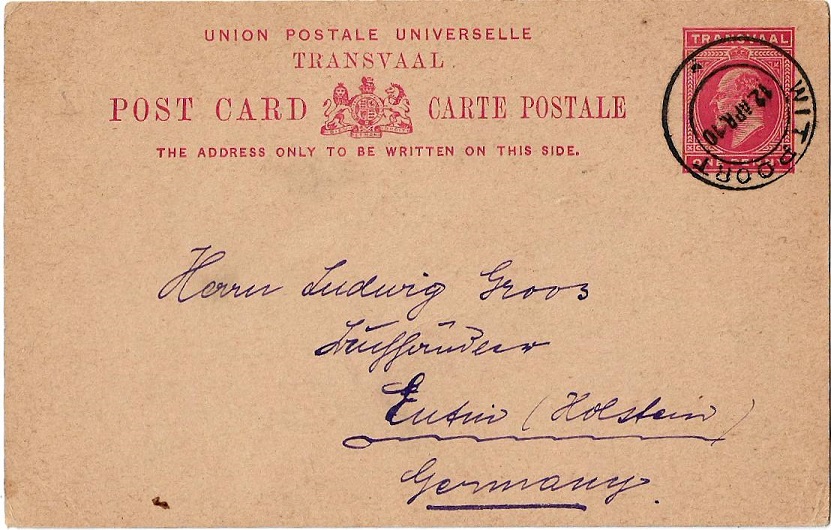 UNION POSTALE UNIVERSELLE
TRANSVAAL.
POST CARD CARTE POSTALE
THE ADDRESS ONLY TO BE WRITTEN ON THIS SIDE.
TRANSVAAL
WITPOORT
12 APR 10
Herrn Ludwig Groos
Buchhändler
Eutin (Holstein)
Germany.